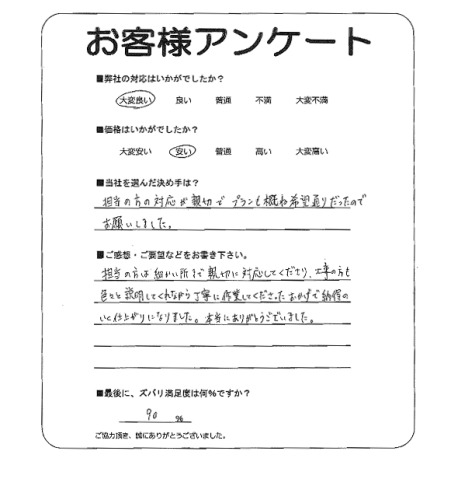 お客様アンケート
■弊社の対応はいかがでしたか？
大変良い 良い 普通 不満 大変不満
■価格はいかがでしたか？
大変安い 安い 普通 高い 大変高い
■当社を選んだ決め手は？
担当の方の対応が親切で プランも概ね希望通りだったので
お願いしました。
■ご感想・ご要望などをお書き下さい。
担当の方は細かい所まで親切に対応してくださり、工事の方も
色々と説明してくれながら丁寧に作業してくださったおかげで納得の
いく仕上がりになりました。本当にありがとうございました。
■最後に、ズバリ満足度は何%ですか？
90 %
ご協力頂き、誠にありがとうございました。